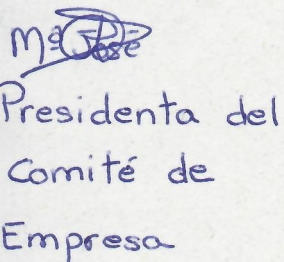 Mª José
Presidenta del
Comité de
Empresa